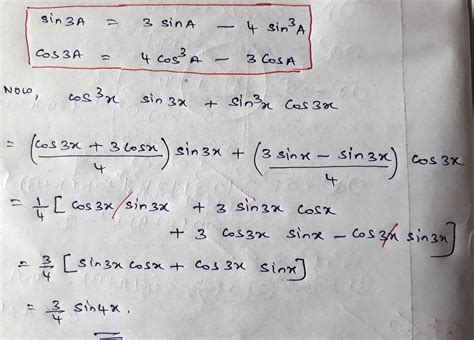 sin3A = 3 sinA − 4 sin³A
cos3A = 4 cos³A − 3 cosA
Now, cos³x sin3x + sin³x cos3x
= ((cos3x + 3cosx)/4) sin3x + ((3 sinx − sin3x)/4) cos3x
= 1/4 [ cos3x sin3x + 3 sin3x cosx
+ 3 cos3x sinx − cos3x sin3x ]
= 3/4 [ sin3x cosx + cos3x sinx ]
= 3/4 sin4x.